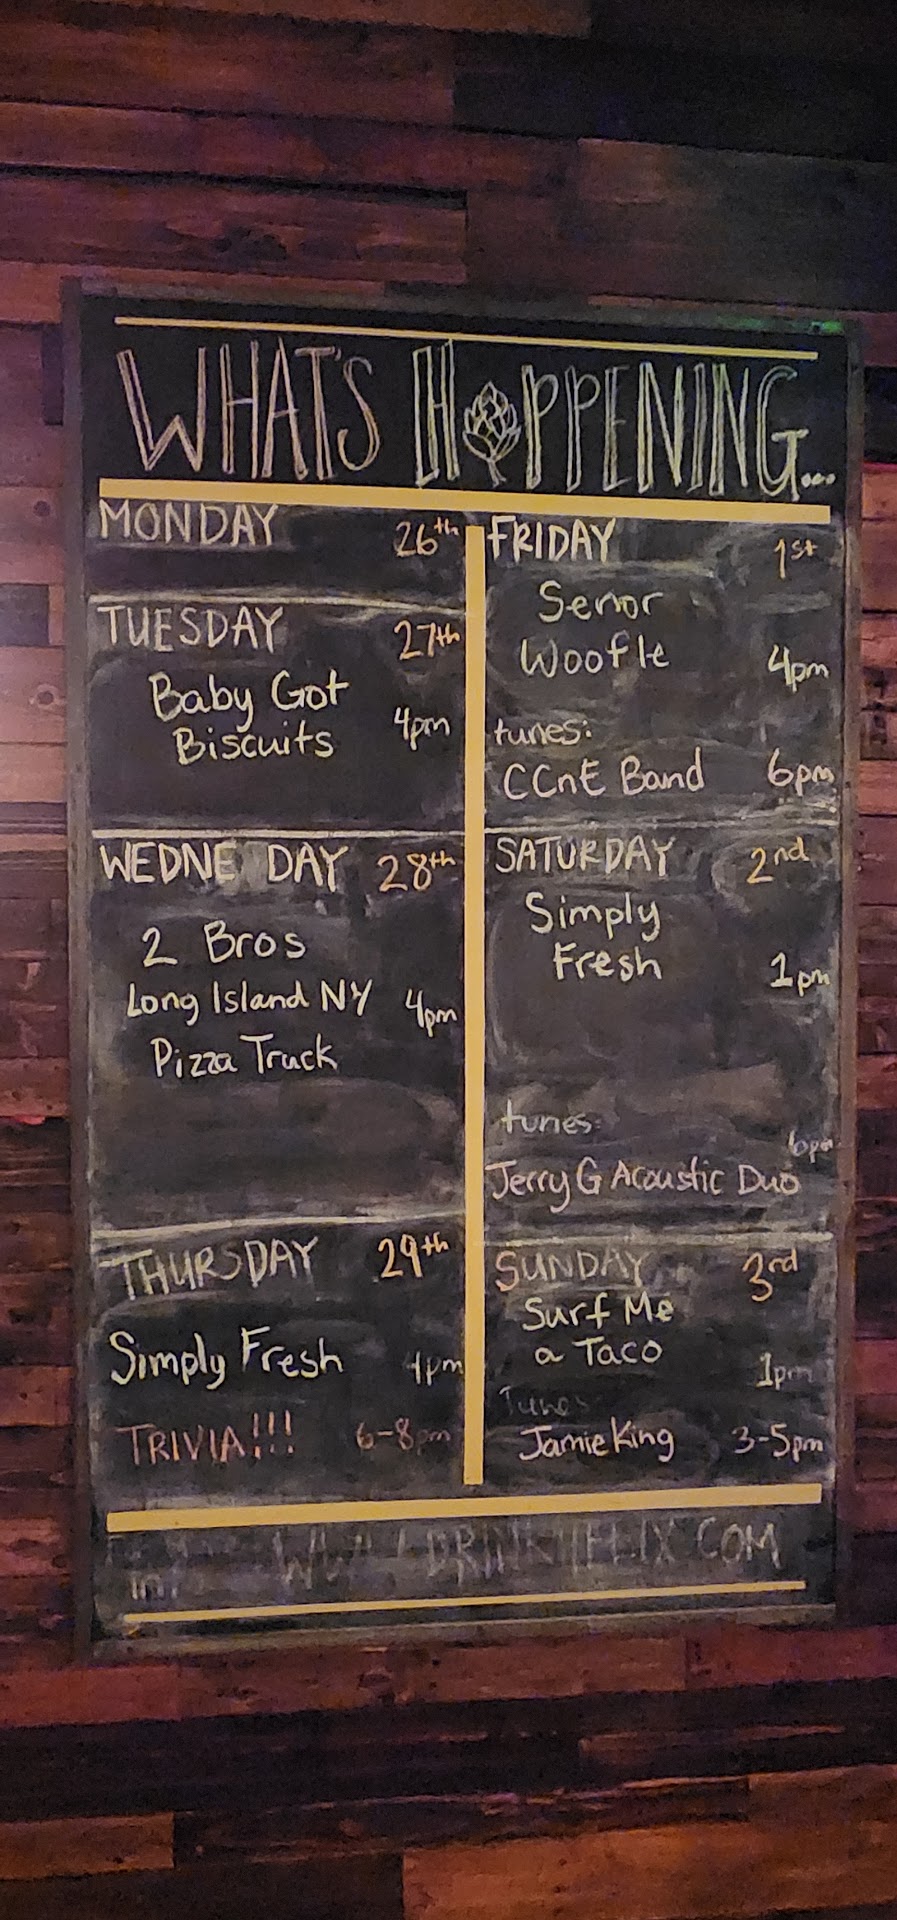 WHAT'S HOPPENING...
MONDAY 26th
TUESDAY 27th
Baby Got
Biscuits 4pm
WEDNE DAY 28th
2 Bros
Long Island NY 4pm
Pizza Truck
THURSDAY 29th
Simply Fresh 4pm
TRIVIA!!! 6-8pm
FRIDAY 1st
Senor
Woofle 4pm
tunes:
CCnE Band 6pm
SATURDAY 2nd
Simply
Fresh 1pm
tunes:
6pm
Jerry G Acoustic Duo
SUNDAY 3rd
Surf Me
a Taco 1pm
Tunes
Jamie King 3-5pm
DRINKHELIX.COM